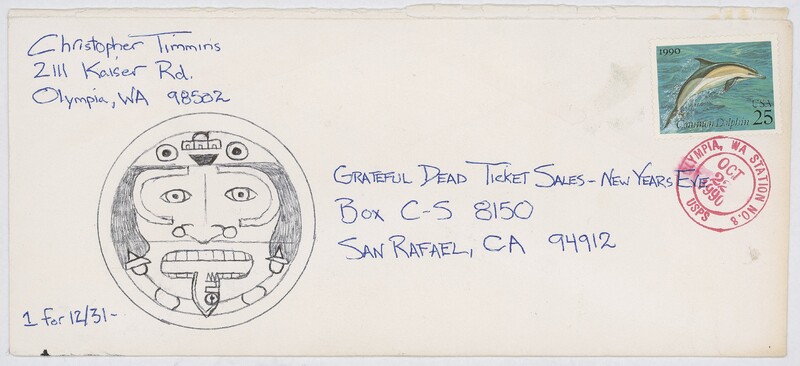 Christopher Timmins
2111 Kaiser Rd.
Olympia, WA 98502
1990
USA
Common Dolphin 25
OLYMPIA, WA STATION NO. 8
OCT
1990
USPS
GRATEFUL DEAD TICKET SALES - NEW YEARS EVE
BOX C-S 8150
SAN RAFAEL, CA 94912
1 for 12/31-